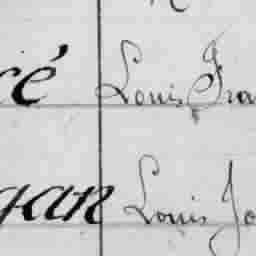 ré Louis Fra
gan Louis Jo